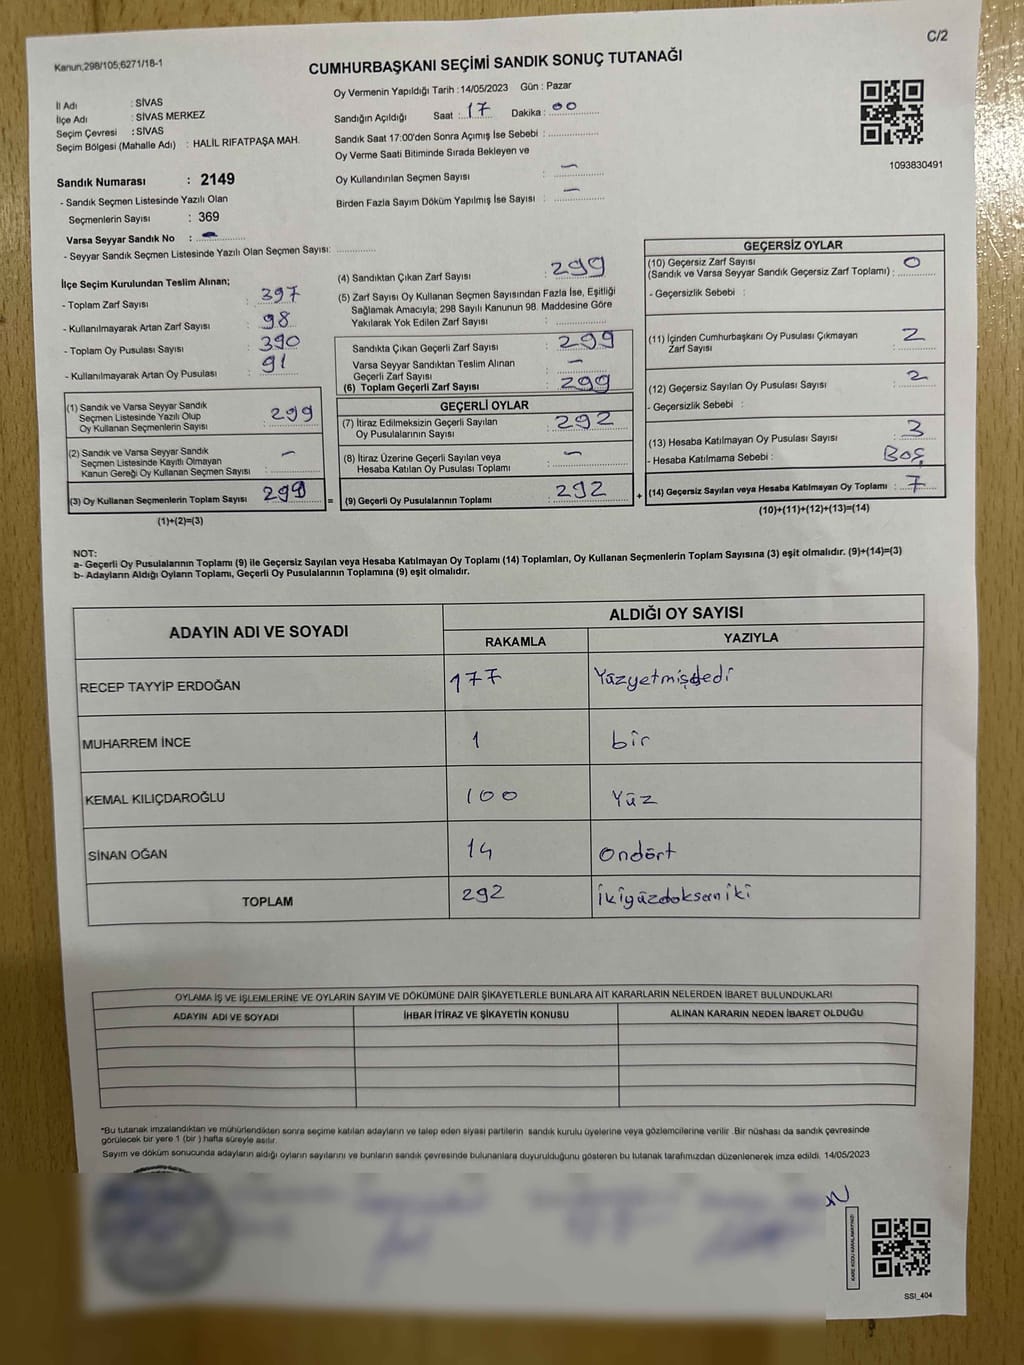 Kanun;298/105;6271/18-1
C/2
CUMHURBAŞKANI SEÇİMİ SANDIK SONUÇ TUTANAĞI
İl Adı : SİVAS
İlçe Adı : SİVAS MERKEZ
Seçim Çevresi : SİVAS
Seçim Bölgesi (Mahalle Adı) : HALİL RIFATPAŞA MAH.
Sandık Numarası : 2149
- Sandık Seçmen Listesinde Yazılı Olan
Seçmenlerin Sayısı : 369
Varsa Seyyar Sandık No : -
- Seyyar Sandık Seçmen Listesinde Yazılı Olan Seçmen Sayısı: ............
Oy Vermenin Yapıldığı Tarih :14/05/2023 Gün : Pazar
Sandığın Açıldığı Saat : 17 Dakika : 00
Sandık Saat 17:00'den Sonra Açımış İse Sebebi : ............
Oy Verme Saati Bitiminde Sırada Bekleyen ve
Oy Kullandırılan Seçmen Sayısı : -
Birden Fazla Sayım Döküm Yapılmış İse Sayısı : -
1093830491
İlçe Seçim Kurulundan Teslim Alınan;
- Toplam Zarf Sayısı : 397
- Kullanılmayarak Artan Zarf Sayısı : 98
- Toplam Oy Pusulası Sayısı : 390
- Kullanılmayarak Artan Oy Pusulası : 91
(1) Sandık ve Varsa Seyyar Sandık
Seçmen Listesinde Yazılı Olup
Oy Kullanan Seçmenlerin Sayısı : 299
(2) Sandık ve Varsa Seyyar Sandık
Seçmen Listesinde Kayıtlı Olmayan
Kanun Gereği Oy Kullanan Seçmen Sayısı : -
(3) Oy Kullanan Seçmenlerin Toplam Sayısı : 299
(1)+(2)=(3)
=
(4) Sandıktan Çıkan Zarf Sayısı : 299
(5) Zarf Sayısı Oy Kullanan Seçmen Sayısından Fazla İse, Eşitliği
Sağlamak Amacıyla; 298 Sayılı Kanunun 98. Maddesine Göre
Yakılarak Yok Edilen Zarf Sayısı : ............
Sandıkta Çıkan Geçerli Zarf Sayısı : 299
Varsa Seyyar Sandıktan Teslim Alınan
Geçerli Zarf Sayısı : -
(6) Toplam Geçerli Zarf Sayısı : 299
GEÇERLİ OYLAR
(7) İtiraz Edilmeksizin Geçerli Sayılan
Oy Pusulalarının Sayısı : 292
(8) İtiraz Üzerine Geçerli Sayılan veya
Hesaba Katılan Oy Pusulası Toplamı : -
(9) Geçerli Oy Pusulalarının Toplamı : 292
+
GEÇERSİZ OYLAR
(10) Geçersiz Zarf Sayısı
(Sandık ve Varsa Seyyar Sandık Geçersiz Zarf Toplamı) : 0
- Geçersizlik Sebebi :
(11) İçinden Cumhurbaşkanı Oy Pusulası Çıkmayan
Zarf Sayısı : 2
(12) Geçersiz Sayılan Oy Pusulası Sayısı : 2
- Geçersizlik Sebebi :
(13) Hesaba Katılmayan Oy Pusulası Sayısı : 3
- Hesaba Katılmama Sebebi : Boş
(14) Geçersiz Sayılan veya Hesaba Katılmayan Oy Toplamı : 7
(10)+(11)+(12)+(13)=(14)
NOT:
a- Geçerli Oy Pusulalarının Toplamı (9) ile Geçersiz Sayılan veya Hesaba Katılmayan Oy Toplamı (14) Toplamları, Oy Kullanan Seçmenlerin Toplam Sayısına (3) eşit olmalıdır. (9)+(14)=(3)
b- Adayların Aldığı Oyların Toplamı, Geçerli Oy Pusulalarının Toplamına (9) eşit olmalıdır.
ADAYIN ADI VE SOYADI ALDIĞI OY SAYISI
RAKAMLA YAZIYLA
RECEP TAYYİP ERDOĞAN 177 Yüzyetmişdedi
MUHARREM İNCE 1 bir
KEMAL KILIÇDAROĞLU 100 Yüz
SİNAN OĞAN 14 Ondört
TOPLAM 292 İkiyüzdoksaniki
OYLAMA İŞ VE İŞLEMLERİNE VE OYLARIN SAYIM VE DÖKÜMÜNE DAİR ŞİKAYETLERLE BUNLARA AİT KARARLARIN NELERDEN İBARET BULUNDUKLARI
ADAYIN ADI VE SOYADI İHBAR İTİRAZ VE ŞİKAYETİN KONUSU ALINAN KARARIN NEDEN İBARET OLDUĞU
*Bu tutanak imzalandıktan ve mühürlendikten sonra seçime katılan adayların ve talep eden siyasi partilerin sandık kurulu üyelerine veya gözlemcilerine verilir .Bir nüshası da sandık çevresinde
görülecek bir yere 1 (bir ) hafta süreyle asılır.
Sayım ve döküm sonucunda adayların aldığı oyların sayılarını ve bunların sandık çevresinde bulunanlara duyurulduğunu gösteren bu tutanak tarafımızdan düzenlenerek imza edildi. 14/05/2023
KARE KODU KARALAMAYINIZ!
SSI_404